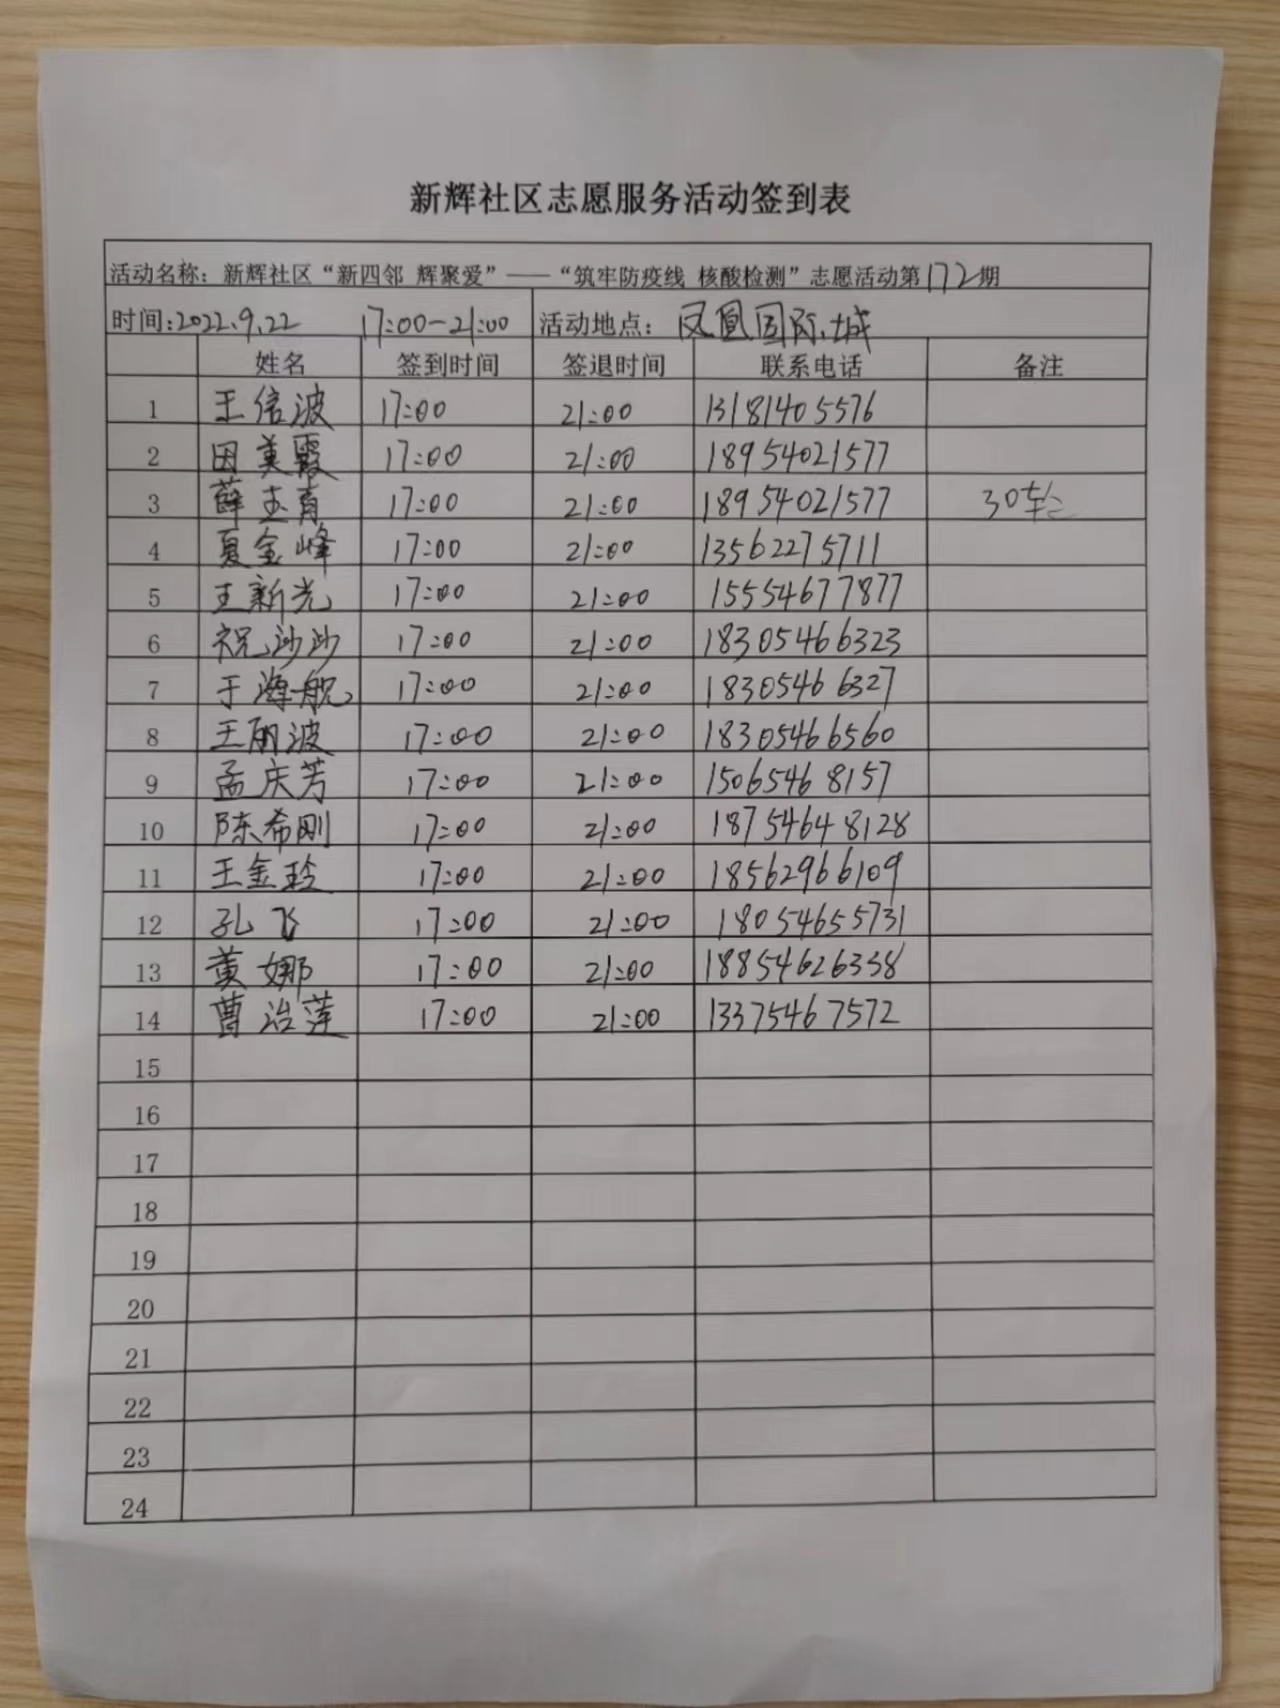 新辉社区志愿服务活动签到表
活动名称：新辉社区“新四邻 辉聚爱”——“筑牢防疫线 核酸检测”志愿活动第172期
时间:2022.9.22 17:00-21:00 活动地点：凤凰国际城
姓名 签到时间 签退时间 联系电话 备注
1 王信波 17:00 21:00 13181405576
2 田美霞 17:00 21:00 18954021577
3 薛玉青 17:00 21:00 18954021577 30轮
4 夏金峰 17:00 21:00 13562275711
5 王新光 17:00 21:00 15554677877
6 祝沙沙 17:00 21:00 18305466323
7 于海舰 17:00 21:00 18305466327
8 王丽波 17:00 21:00 18305466560
9 孟庆芳 17:00 21:00 15065468157
10 陈希刚 17:00 21:00 18754648128
11 王金玲 17:00 21:00 18562966109
12 孔飞 17:00 21:00 18054655731
13 黄娜 17:00 21:00 18854626358
14 曹治莲 17:00 21:00 13375467572
15
16
17
18
19
20
21
22
23
24